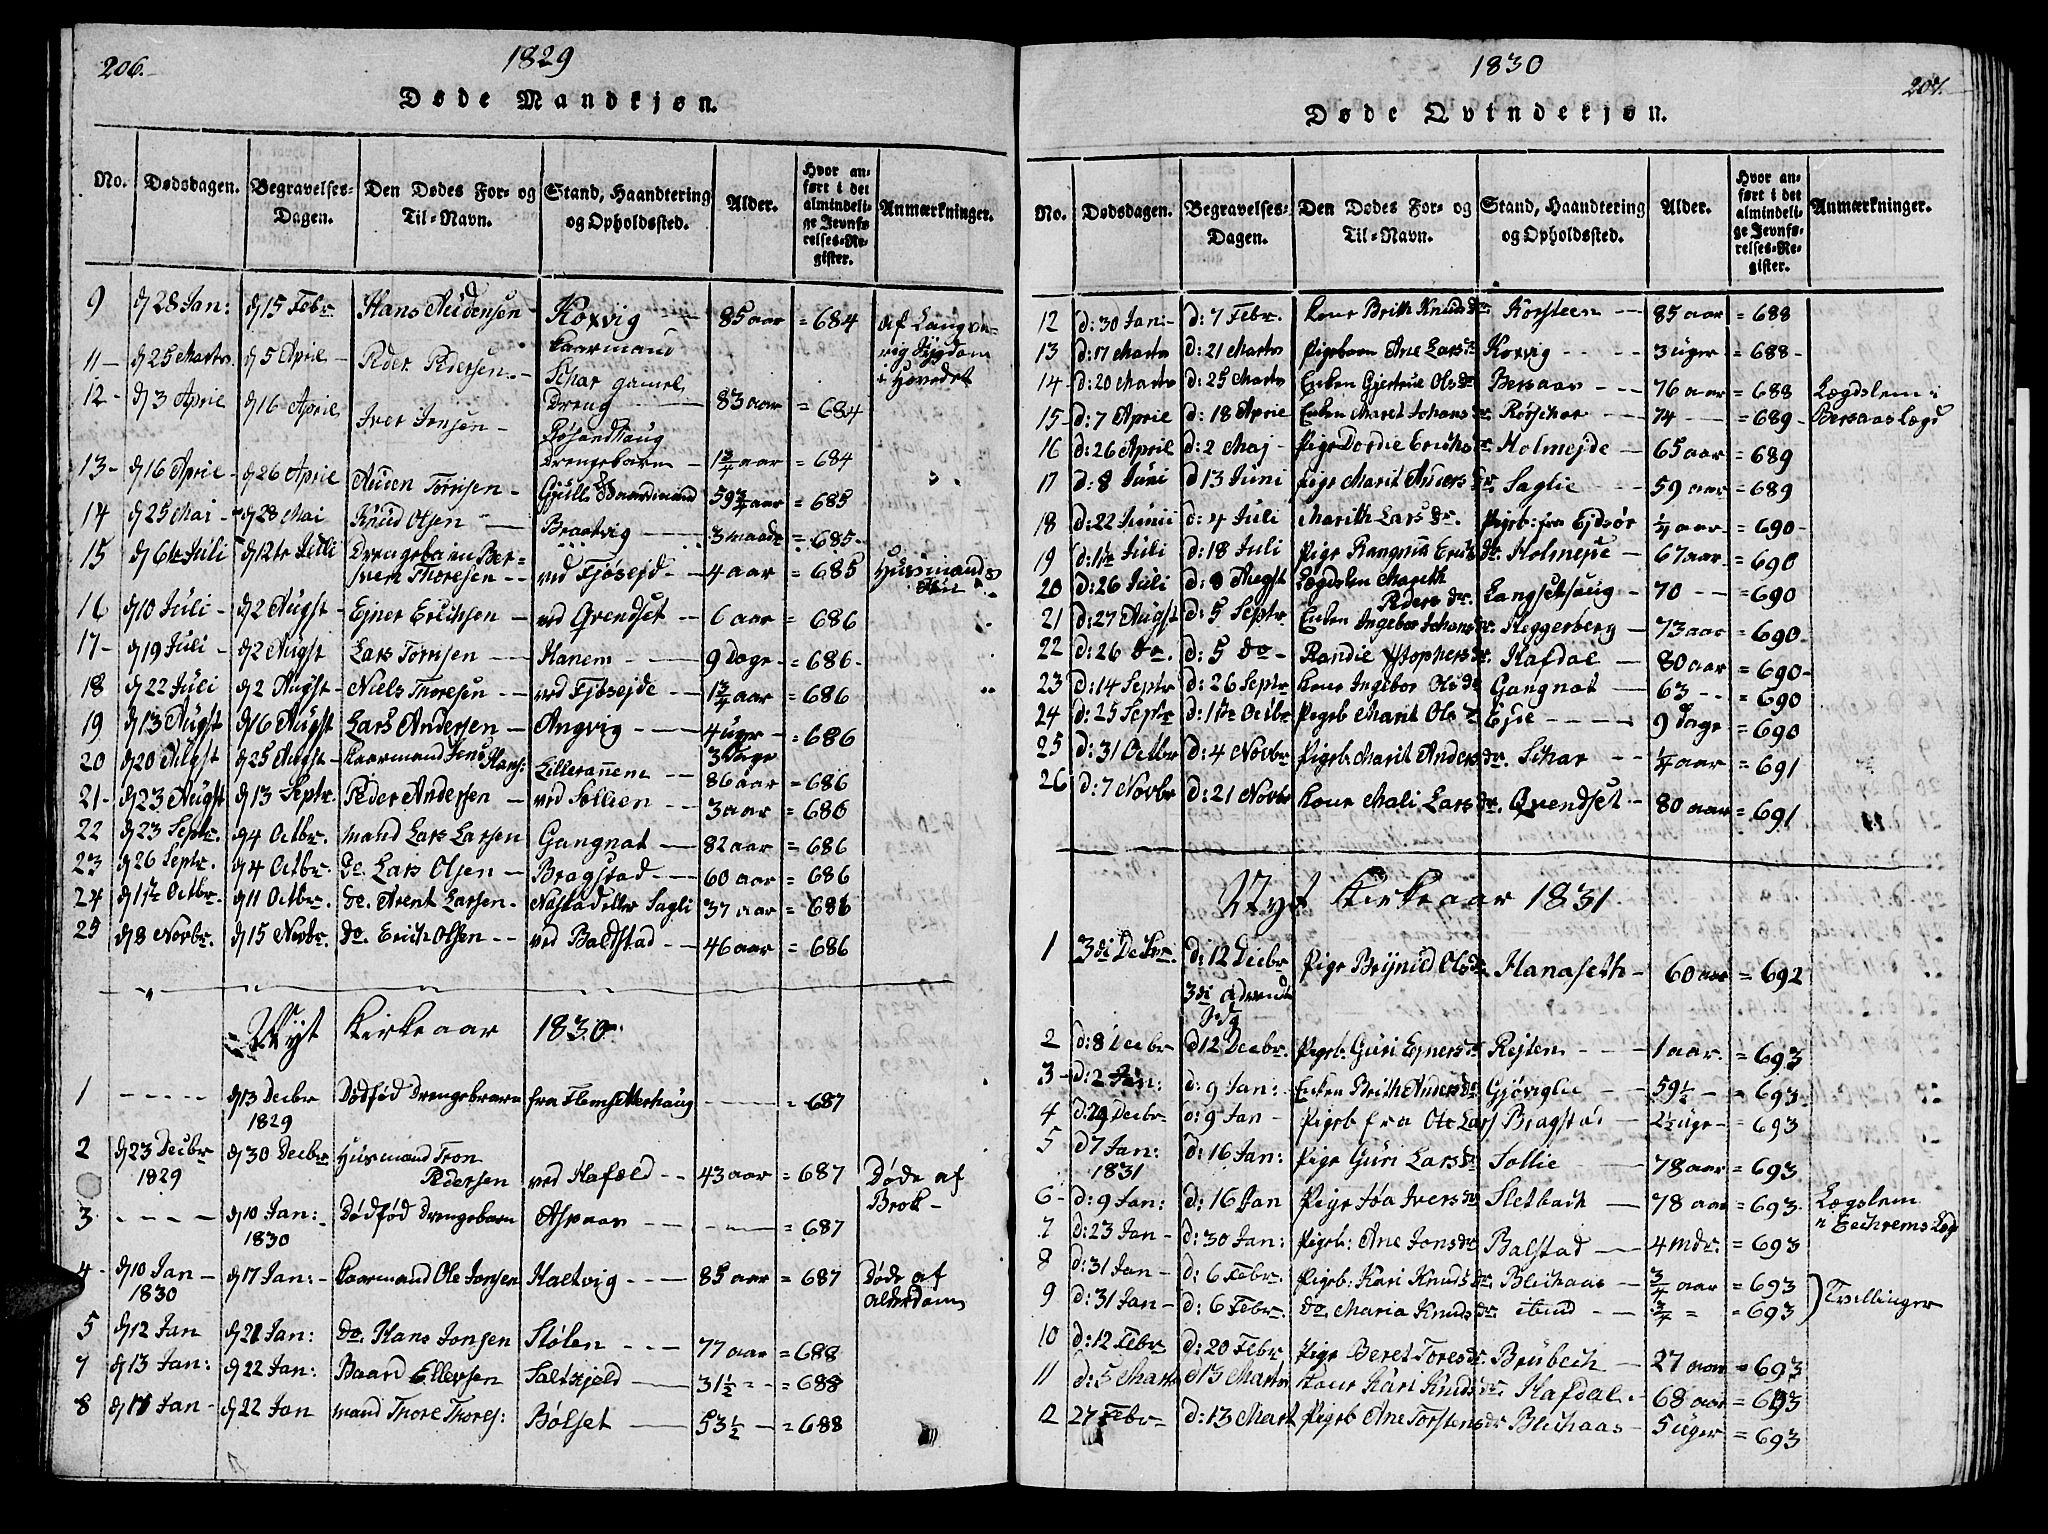 206.
1829
Døde Mandkjøn.
No. Dødsdagen. Begravelses-Dagen. Den Dødes For- og Til-Navn. Stand, Haandtering og Opholdssted. Alder. Hvor anført i det almindelige Jevnførelses-Register. Anmærkninger.
9 d 28 Jan: d 15 Febr Hans Audensen Koxvig 85 aar = 684 af Langvarig Sygdom
Kaarmand
11 - d 25 Martz d 5 April - Peder Pedersen - Schar gamel i Hovedet
12 - d 3 April d 16 April Iver Jonsen - Dreng 83 aar = 684
Røsandhaug
Drengebarn - 1 3/4 aar = 684
13 - d 16 April - d 26 April Auden Tornsen - Gjulle Baardmand 59 3/4 aar = 685
14 d 25 Mai - d 28 Mai Knud Olsen Braatvig 3 maade = 685 -
15 d 6te Juli d 12te Julli Drengebarn Ber-
sven Thoresen - - ved Fjøsejd - - 4 aar = 685 Huusmands
Søn
16 d 10 Juli - d 2 Augst - Ejner Erichsen - ved Grendset - 6 aar = 686
17 - d 19 Juli - d 2 Augst Lars Tornsen - Hanem - 9 Dage - = 686 -
18 d 22 Juli d 2 Augst - Niels Thoresen - - ved Fjøsejde - - 1 3/4 aar = 686
19 d 13 Augst d 16 Augst Lars Andersen - Angvig - 4 uger - = 686
3 Dage
20 d 20 Augst d 25 Augst - Kaarmand Jens Hans: Lilleranem - - 86 aar = 686
21 - d 23 Augst d 13 Septr. Peder Andersen - ved Sollien - - 3 aar = 686
22 d 23 Septr. d 4 Octbr. mand Lars Larsen Gangnat - 82 aar = 686
23 d 26 Septr. d 4 Octbr. do. Lars Olsen - Bragstad - - 60 aar = 686
24 d 1te Octbr. d 11 Octbr. do. Arent Larsen - Nastad eller Sagli 37 aar = 686
25 d 8 Novbr. d 15 Novbr. do. Erich Olsen - - ved Baldstad - - 46 aar = 686
Nyt Kirkeaar 1830.
1 - - - - - d 13 Decbr Dødfød Drengebarn fra Flemsetterhaug - - - - = 687
1829
2 d 23 Decbr d 30 Decbr Huusmand Tron
1829 Pedersen ved Hafæld - - 43 aar = 687 Døde af
Brok -
3 - - - - d 10 Jan: Dødfød Drengebarn Aspaas - - - = 687
1830
4 - d 10 Jan - d 17 Jan: - Kaarmand Ole Jonsen Haltvig - - - 85 aar = 687 Døde af
1830 Alderdom
5 d 12 Jan d 21 Jan: do. Hans Jonsen Stølen - - - 77 aar = 688
7 d 13 Jan: d 22 Jan: Baard Ellevsen Saltkjeld - 31 1/2 = - = 688
8 d 11 Jan - d 22 Jan mand Thore Thores: Bølset - 53 1/2 - = 688
1830
207.
Døde Qvindekjøn.
No. Dødsdagen. Begravelses-Dagen. Den Dødes For- og Til-Navn. Stand, Haandtering og Opholdssted. Alder. Hvor anført i det almindelige Jevnførelses-Register. Anmærkninger.
12 d: 30 Jan: - d: 7 Febr. Kone Brith Knudsdr. Korsteen - - 85 aar = 688
13 d: 17 Martz d: 21 Martz Pigebarn Ane Larsdr Koxvig - - - 3 uger = 688 -
14 - d: 20 Martz d: 25 Martz Enken Gjertrue Olsdr Bersaas - - - 76 aar = 688 Lægdslem i
15 - d: 7 April d: 18 April Enken Maret Johansdr. Rørschar - - - 74 - = 689 - Bersaas Lægd
16 d: 26 April d: 2 Maj - Pige Dordie Erichsdr Holmejde - 65 aar = 689
17 d: 8 Juni d 13 Juni Pige Marit Andersdr. Saglie - - - 59 aar = 689
18 d: 22 Junii d: 4 Juli Marith Larsdr. Pigeb: fra Ejdsør 1/4 aar = 690 -
19 d: 1te Juli d: 18 Juli Pige Rangnild Erichsdr. Holmejde - 67 aar = 690
20 d: 26 Juli d: 8 Augst Lægdslem Marith
Pedersdr. Langsethaug - 70 - - = 690
21 d: 27 Augst d: 5 Septr. Enken Ingebor Johansdr. Heggerberg - 73 aar = 690 -
22 d: 26 do. d: 5 do - Randie Stophersdr. Hafdal - 80 aar = 690 -
23 d: 14 Septr d: 26 Septr Kone Ingebor Olsdr Gangnat - 63 - - = 690
24 d: 25 Septr d: 1te Octbr Pigeb Marit Olsdr Ejde - - - - 9 Dage = 690
25 d: 31 Octbr d: 4 Novbr Pigeb: Marit Andersdr. Schar - - 1/4 aar = 691
26 d: 7 Novbr d: 21 Novbr Kone Mali Larsdr. Qvendset - 80 aar = 691
Nyt Kirkeaar 1831.
1 3di Decbr. d: 12 Decbr Pige Brynild Olsdr Hanaseth - 60 aar = 692
3di Advendts
Sdg
2 d: 8 Decbr d 12 Decbr. Pigeb: Guri Ejnersdr Rejten - - - 1 aar - = 693
3 - d: 2 Jan: d: 9 Jan: - Enken Brith Andersdr Gjøviglie - - 59 1/2 - = 693
4 d: 29 Decbr d: 9 Jan - Pigeb fra Ole Lars Bragstad - 2 1/2 uge - = 693
5 d 7 Jan: d: 16 Jan: Pige Guri Larsdr Sollie - - 78 aar = 693
1831
6 - d: 9 Jan: d: 16 Jan Pige Soa Iversdr Sletbach - 78 aar = 693 - Lægslem
i Eschrems Læg
7 d: 23 Jan - d: 30 Jan: Pigeb: Ane Jonsdr Balstad - 4 mdr. = 693
8 d: 31 Jan - d: 6 Febr. Pigeb: Kari Knudsdr. Blichaas - 3/4 aar = 693
9 d: 31 Jan - d: 6 Febr. do Maria Knudsdr. ibid - - 3/4 = = 693 Tvillinger
10 d: 12 Febr d: 20 Febr Pige Beret Toresdr. Brubech - 27 aar = 693
11 d: 5 Martz d 13 Martz Kone Kari Knudsdr. Hafdal - 68 aar = 693
12 27 Febr - d: 13 Mart Pigeb Ane Torstensdr. Blichaas - 5 uger = 693